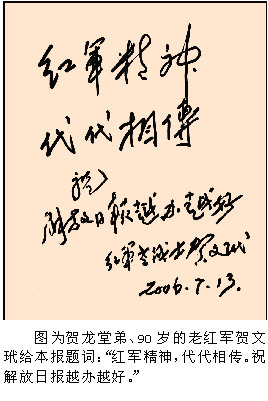 红軍精神
代代相傳
祝
解放日报越办越好
红軍老战士贺文玳
2006.7.13.
图为贺龙堂弟、90岁的老红军贺文
玳给本报题词：“红军精神，代代相传。祝
解放日报越办越好。”